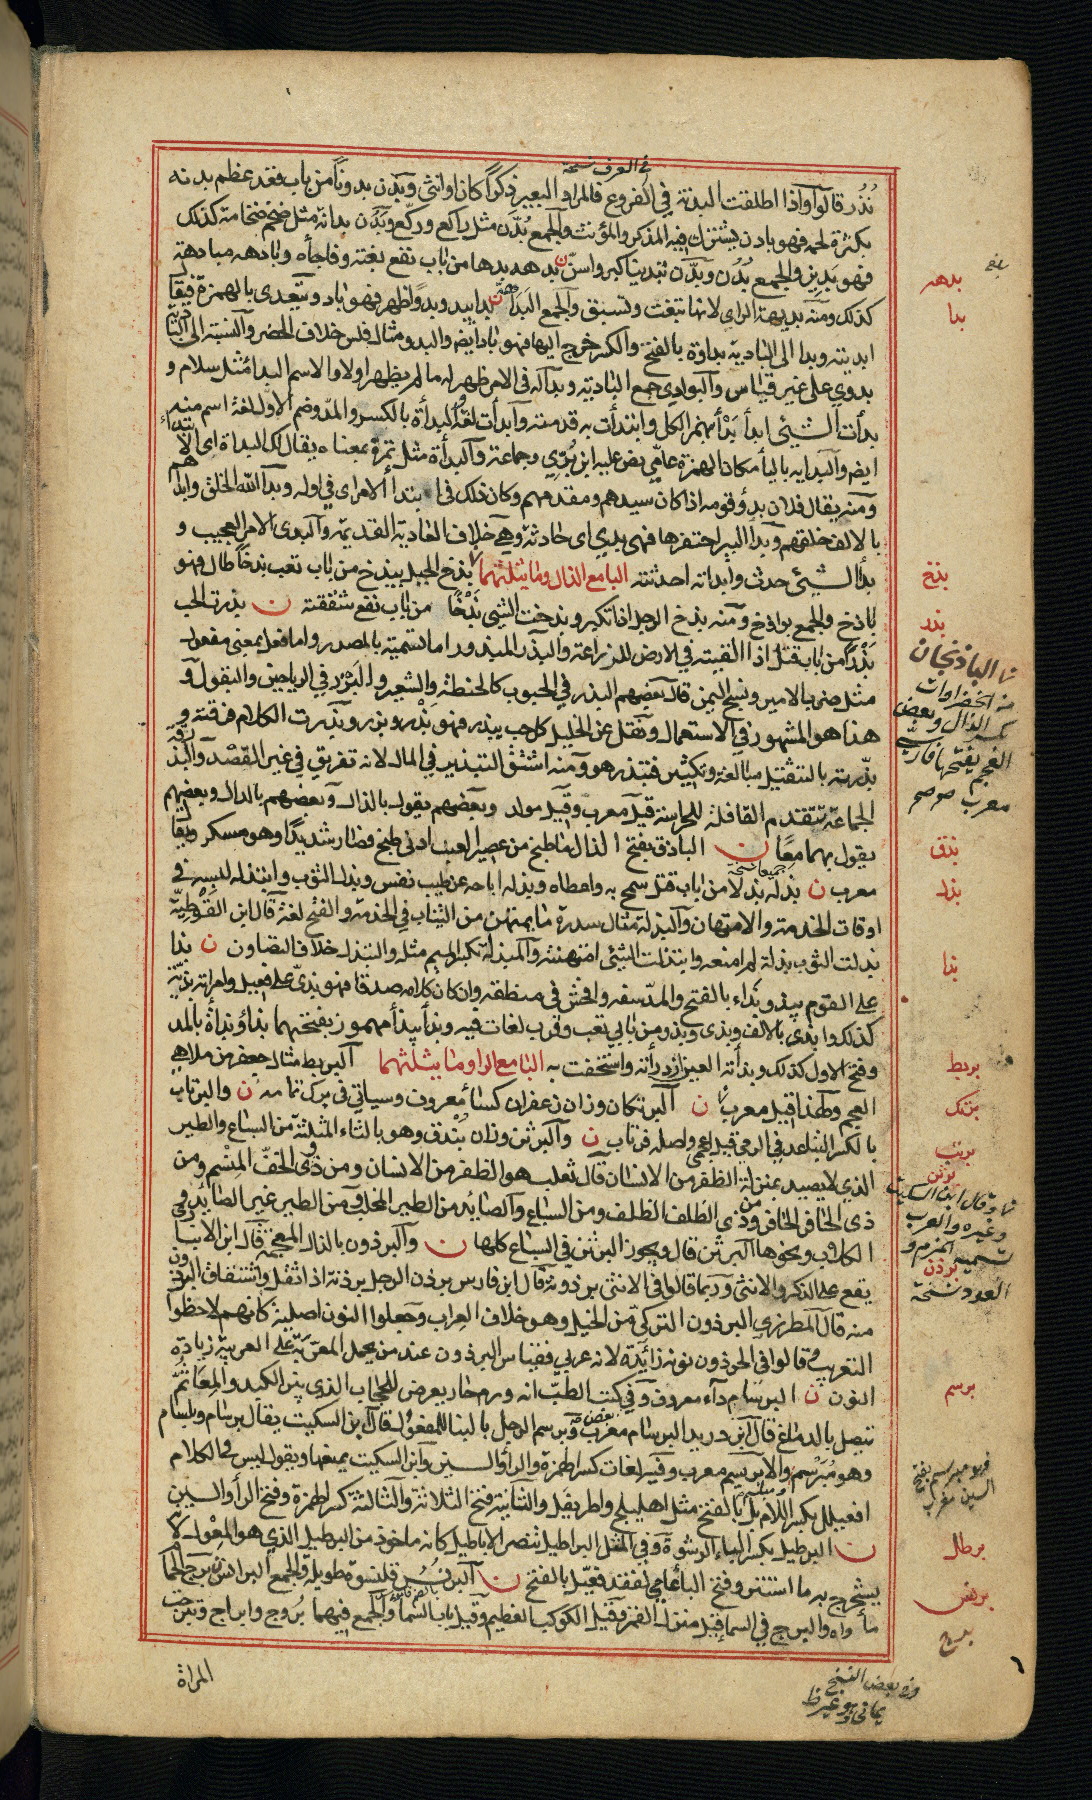 في العرف نسخة
نُذُر قالوا واذا اطلقت البدنة في الفروع فالمراد البعير ذكرًا كان او انثى وبَدَن بدونا من باب قعد عظم بدنه
بكثرة لحمه فهو بادن يشترك فيه المذكر والمؤنث والجمع بُدَّن مثل راكع وركّع وبَدُن بدانة مثل ضخم ضخامة كذلك
فهو بَدِين والجمع بُدُن وبدّن تبدينا كبر واسنّ ن بدهه بدها من باب نفع بغته وفاجأه وبادهه مبادهة
كذلك ومنه بديهة الراى لانها تبغت وتسبق والجمع البَدَائه ن بدا يبدو بدوًا ظهر فهو باد ويتعدى بالهمزة فيقا
ابديته وبدا الى البادية بداوة بالفتح والكسر خرج اليها فهو باد ايضا والبدو مثال فلس خلاف الحضر والنسبة الى البادية
بدوي على غير قياس والبوادي جمع البادية وبدا له في الامر ظهر له ما لم يظهر اولا والاسم البداء مثل سلام و
بدأت الشيئ ابدأ بَدْأ بهمز الكل وابتدأت به قدمته وابدأت لغة والبدأة بالكسر والمد وضم الاول لغة اسم منه
ايضا والبداية بالياء مكان الهمزة عامّي نص عليه ابن برّي وجماعة والبدأة مثل تمرة بمعناه يقال لك البدأة اى الابتداء
ومنه يقال فلان بدؤ قومه اذا كان سيدهم ومقدمهم وكان ذلك في ابتدا الامر اى في اوله وبدأ الله الخلق وابدأهم
بالالف خلقهم وبدأ البير احتفرها فهى بديء اى حادثة وهي خلاف العادية القديمة والبدئ الامر العجيب و
بدأ الشيئ حدث وابداته احدثته البا مع الذال وما يثلثهما بذخ الجبل يبذخ من باب تعب بذخًا طال فهو
باذخ والجمع بواذخ ومنه بذخ الرجل اذا تكبر وبذخت الشيئ بَذْخًا من باب نفع شققته ن بذرت الحب
بَذْرًا من باب قتل اذا القيته في الارض للزراعة والبذر المبذور اما تسمية بالمصدر واما فعل بمعنى مفعول
مثل ضرب الامير ونسج اليمن قال بعضهم البذر في الحبوب كالحنطة والشعير والبَزْر في الرياحين والبقول و
هذا هو المشهور في الاستعمال ونقل عن الخليل كل حب يبذر فهو بَذْر وبزر وبذرت الكلام فرقته و
بذّرته بالتثقيل مبالغة وتكثير فتبذر هو ومنه اشتق التبذير في المال لانه تفريق في غير القصد والبذرقة
الجماعة تتقدم القافلة للحراسة قيل معرب وقيل مولد وبعضهم يقول بالذال وبعضهم بالدال وبعضهم
يقول بهما معًا ن الباذق بفتح الذال ما طبخ من عصير العنب ادنى طبخ فصار شديدًا وهو مسكر ويقا
جميعا نسخة
معرب ن بذله بذلا من باب قتل سمح به واعطاه وبذله اباحه عن طيب نفس وبذل الثوب وابتذله لبسه في
اوقات الخدمة والامتهان والبذلة مثال سدرة ما يمتهن من الثياب في الخدمة والفتح لغة قال ابن القوطيّة
بذلت الثوب بذلة لم اصنه وابتذلت الشيئ امتهنته والمبذلة بكسر الميم مثله والتبذل خلاف التصاون ن بذا
على القوم يبذو بَذاء بالفتح والمدّ سفه وافحش في منطقه وان كان كلامه صدقا فهو بذيّ على فعيل وامراة بذيّة
كذلك وابذى بالالف وبذى وبذو من بابي تعب وقرب لغات فيه وبذأ يبذأ مهموز بفتحهما بذاءً وبذأة بالمد
وفتح الاول كذلك وبذأته العين ازدرأته واستخفت به البا مع الرا وما يثلثهما البربط مثال جعفر من ملاهي
العجم ولهذا قيل معرب ن البرتكان وزان زعفران كسائ معروف وسياتي في برك تمامه ن والبرتاب
بالكسر التباعد في الرمي قيل اعجمي واصله فرتاب ن والبرثن وزان بُندق وهو بالثاء المثلثة من السباع والطير
الذي لا يصيد بمنزلة الظفر من الانسان قال ثعلب هو الظفر من الانسان ومن ذوى الخفّ المنسِم ومن
ذى الحافر الحافر ومن ذي الظلف الظلف ومن السباع والصايد من الطير المخلب ومن الطير غير الصايد و في
الكلاب ونحوها البرثن قال ويجوز البرثن في السباع كلها ن والبرذون بالذال المعجمة قال ابن الانبا
يقع على الذكر والانثى وربما قالوا في الانثى برذونة قال ابن فارس برذن الرجل برذنة اذا ثقل واشتقاق البرذون
منه قال المطرزي البرذون التركي من الخيل وهو خلاف العِراب وجعلوا النون اصلية كانهم لاحظوا
التعريب وقالوا في الحرذون نونه زائدة لانه عربي فقياس البرذون عند من يحمل المعرّبة على العربية زيادة
النون ن البرسام داء معروف وفي كتب الطبّ انه ورم حار يعرض للحجاب الذي بين الكبد والمِعَا ثُمّ
يتصل بالدماغ قال ابن دريد البرسام معرب وبرسم الرجل بالبنا للمفعول قال ابن السكيت يقال برسام وبلسام
وهو مُبَرْسَم والابريسم معرب وفيه لغات كسر الهمزة والرا والسين وابن السكيت يمنعها ويقول ليس في الكلام
افعيلل بكسر اللام بل بالفتح مثل اهليلج واطريفل والثانية فتح الثلاثة والثالثة كسر الهمزة وفتح الرأ والسين
ن البرطيل بكسر الباء الرشوة وفي المثل البراطيل تنصر الاباطيل كانه ماخوذ من البرطيل الذي هو المِعْول لانّه
يستخرج به ما استتر وفتح البا عامي لفقد فَعليل بالفتح ن البرنس قلنسوة طويلة والجمع البرانس ن برج الحما
مأواه والبرج في السماء قيل منزلة القمر وقيل الكوكب العظيم وقيل باب السماء والجمع فيهما بُروج وابراج وتبرّجت
المراة
بده
بدا
بذخ
بذر
ن الباذنجان
من الخضراوات
بكسر الذال وبعض
العجم يفتحها فارسيّ
معرب صح صح
بذق
بذل
بذا
بربط
برتك
برتب
برثن
قال ابن السكيت
وغيره والعرب
برذن
نسخة
برسم
فهو مبرسم بفتح
السين معرب
برطال
برنس
برج
وفي بعض النسخ